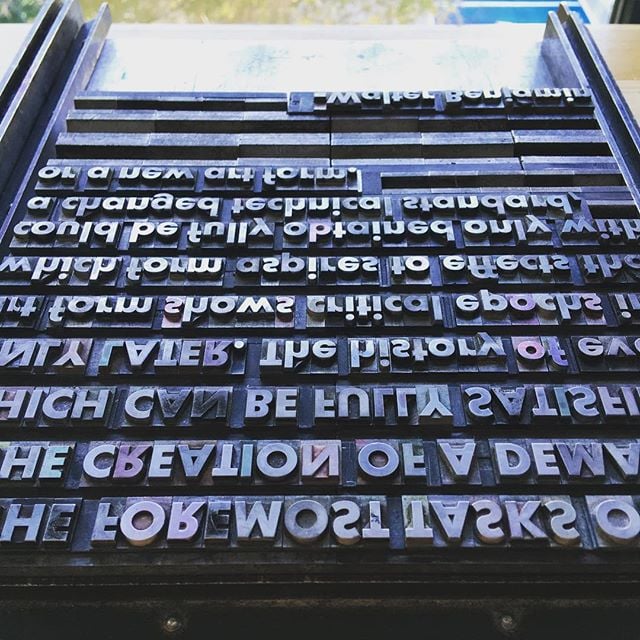 HE FOREMOST TASKS O
HE CREATION OF A DEMA
HICH CAN BE FULLY SATISFI
NLY LATER. The history of eve
rt form shows critical epochs i
which form aspires to effects tha
could be fully obtained only with
a changed technical standard,
or a new art form.
–Walter Benjamin